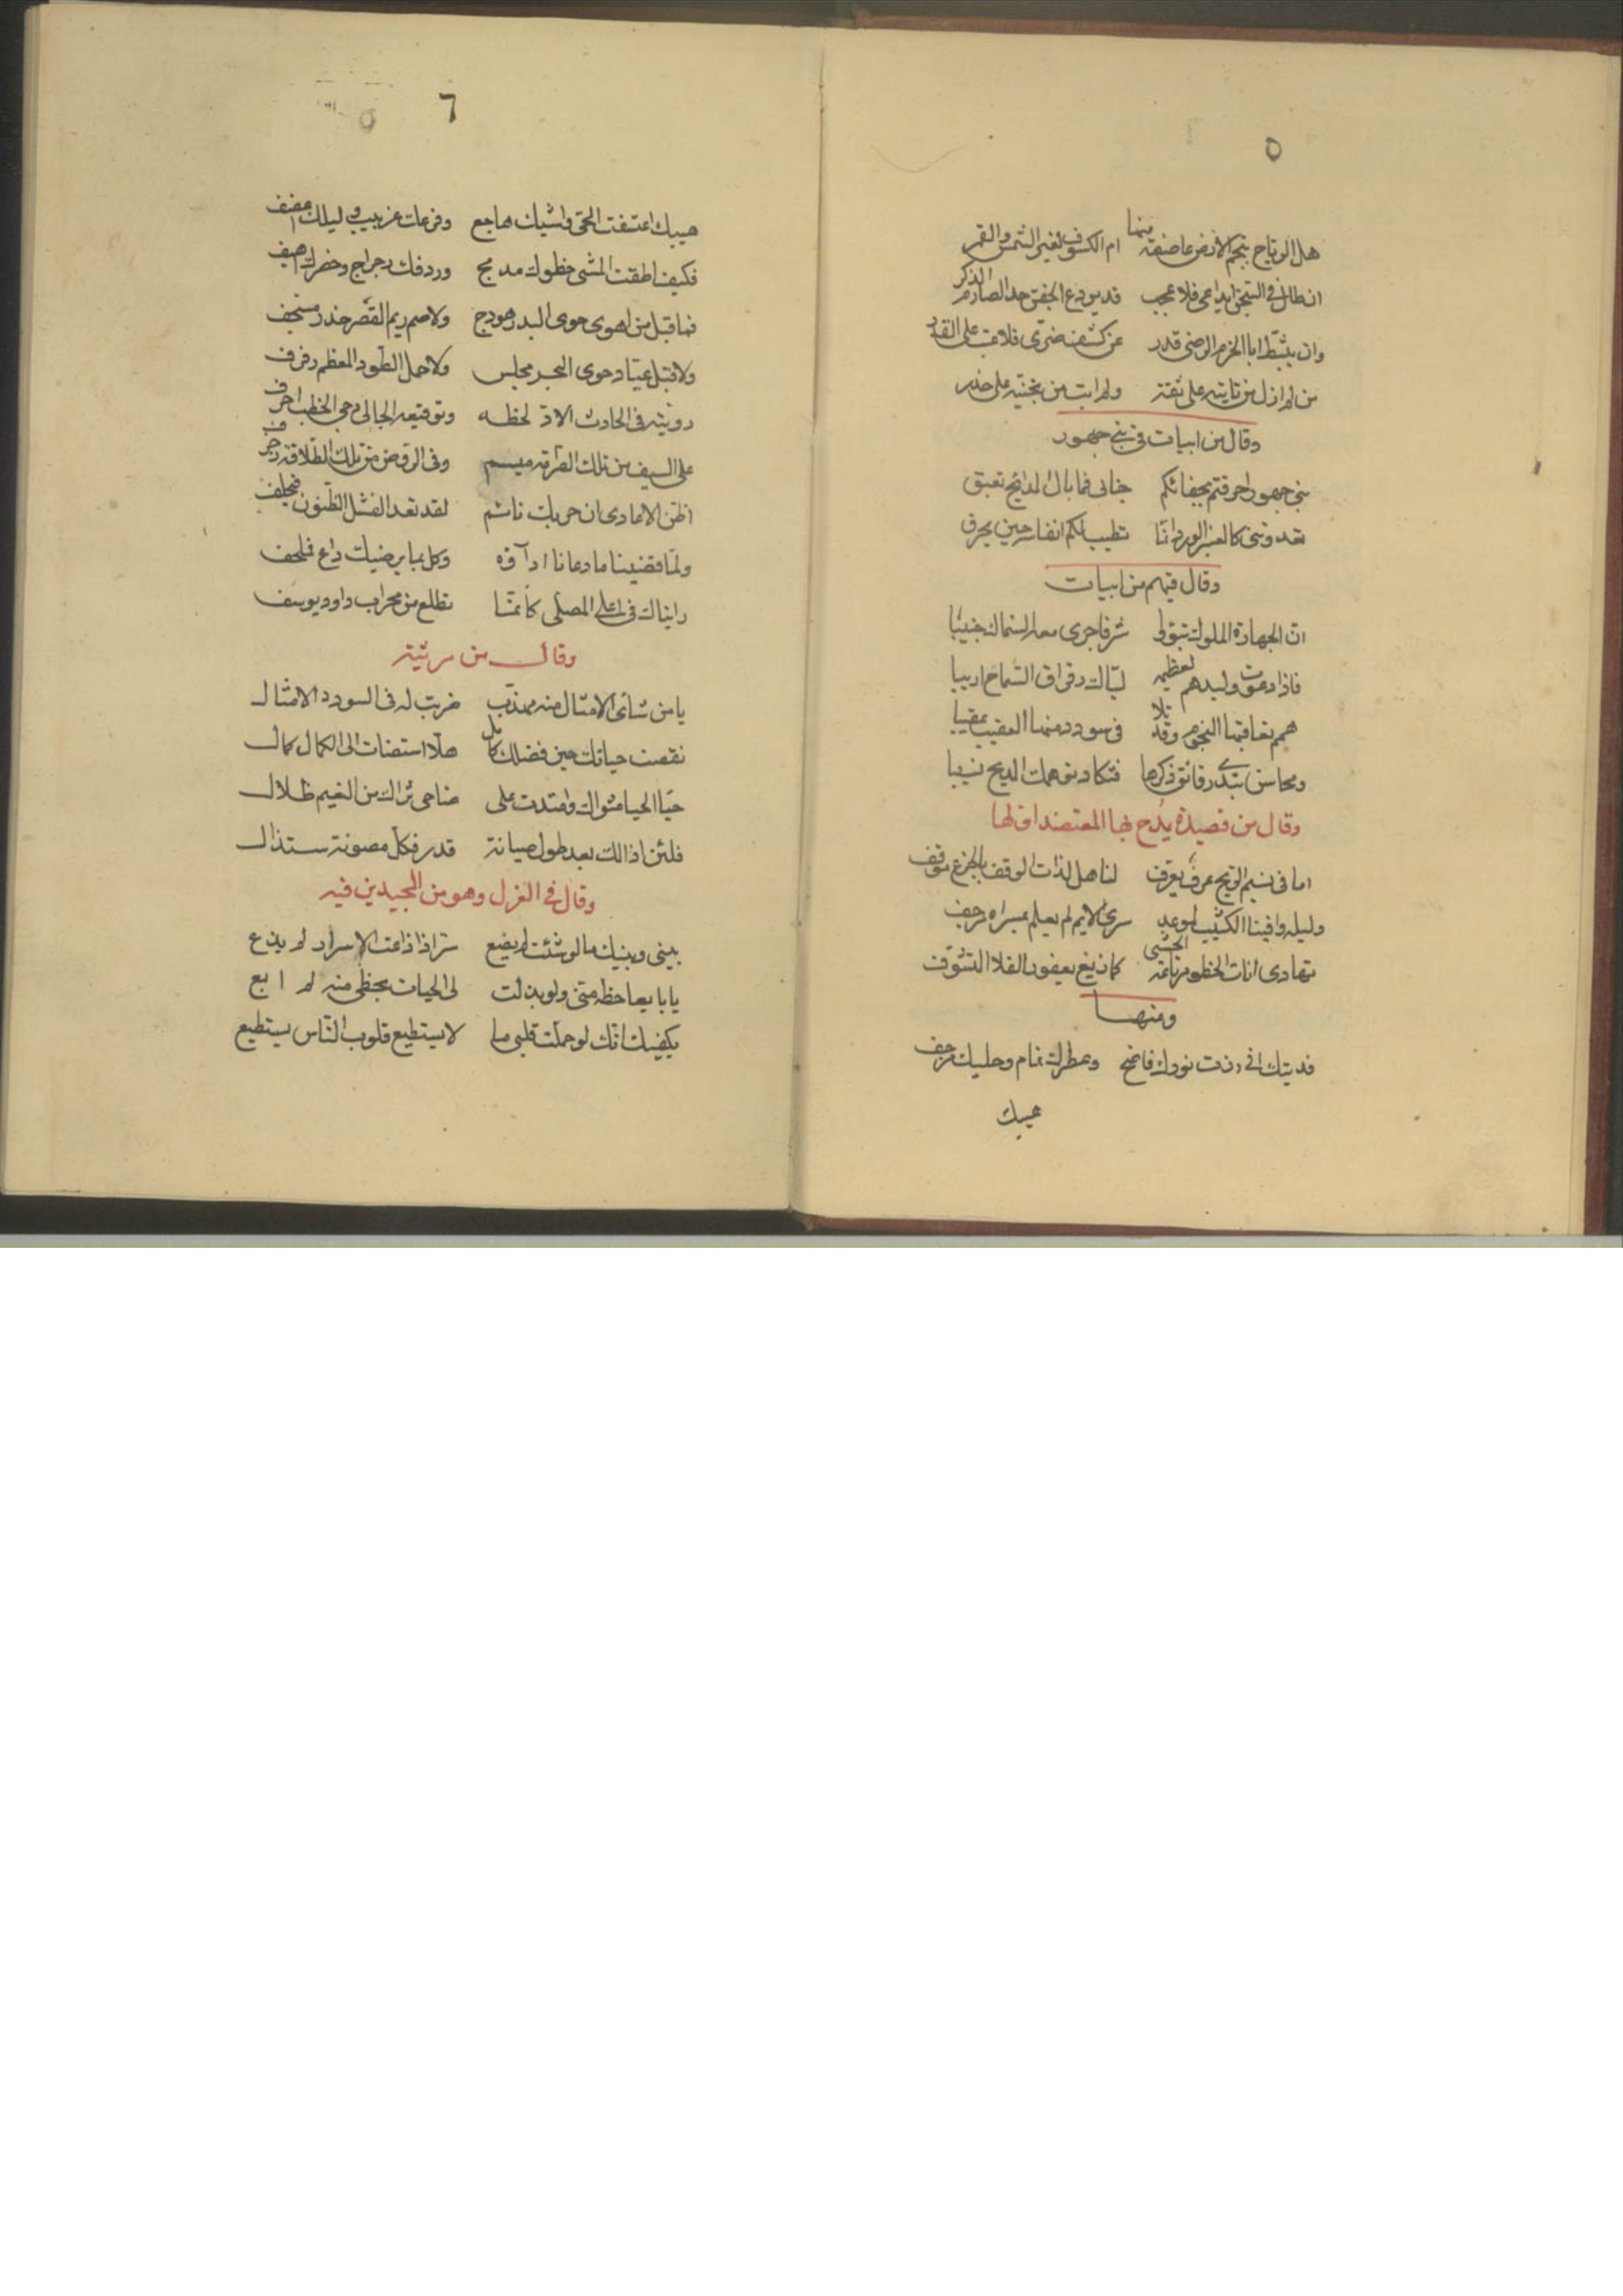 ٥
منها
هل الرياح بنجم الارض عاصفة ام الكسوف لغير الشمس والقمر
ان طال في السجن ايداعي فلا عجب قد يودع الجفن حد الصارم الذكر
وان يثبط ابا الحزم الرضى قدر عن كشف ضرى فلا عتب على القدر
من لم ازل من تانيه على ثقة ولم ابت من تجنيه على حذر
وقال من ابيات في بني جهور
بني جهور احرقتم بجفائكم جناني فما بال المدائح تعبق
تعدونني كالعنبر الورد انما تطيب لكم انفاسه حين يحرق
وقال فيهم من ابيات
ان الجهاورة الملوك تبوؤا شرفا جرى معه السماك جنيبا
فاذا دعوت وليدهم لعظيمة لباك رقراق السماح اريبا
همم تعاقبها النجوم وقد تلا في سودد منها العقيب عقيبا
ومحاسن تبدى رقائق ذكرها فتكاد توهمك المديح نسيبا
وقال من قصيدة يمدح بها المعتضد اولها
اما في نسيم الريح عرف يعرف لنا هل لذات الوقف بالجزع موقف
وليلة وافينا الكثيب لموعد سرى الايم لم يعلم لمسراه مزحف
تهادى اناة الخطو مرتاعة الحشى كما ريع يعفور الفلا المتشوف
ومنها
فديتك انى زرت نورك فاضح وعطرك نمام وحليك مرجف
هبيك
٦
هبيك اعتسفت الحى واشيك هاجع وفرعك غربيب وليلك اغضف
فكيف اطقت المشى خطوك مدمج وردفك رجراج وخصرك اهيف
فما قبل من اهوى حوى البدر هودج ولا ضم ريم القصر خدر مسجف
ولا قبل عباد حوى البحر مجلس ولا حمل الطود المعظم رفرف
رويته في الحادث الاد لحظه وتوقيعه الجالى دجى الخطب احرف
على السيف من تلك الشهامة ميسم وفي الروض من تلك الطلاقة زخرف
اظن الاعادى ان حزمك نائم لقد تعد الفشل الظنون فتخلف
ولما قضينا ما دعانا اداؤه وكل بما يرضيك داع فملحف
رايناك في اعلى المصلى كانما تطلع من محراب داود يوسف
وقال من مرثية
يا من شأى الامثال منه مهذب ضربت له في السودد الامثال
نقصت حياتك حين فضلك كامل هلا استضاف الى الكمال كمال
حيا الحيا مثواك وامتدت على ضاحى ثراك من الغيم ظلال
فلئن اذالك بعد طول صيانة قدر فكل مصونة ستذال
وقال في الغزل وهو من المجيدين فيه
بيني وبينك ما لو شئت لم يضع سر اذا ذاعت الاسرار لم يذع
يا بايعا حظه مني ولو بذلت لى الحيات بحظى منه لم ابع
يكفيك انك لو حملت قلبى ما لا يستطيع قلوب الناس يستطيع